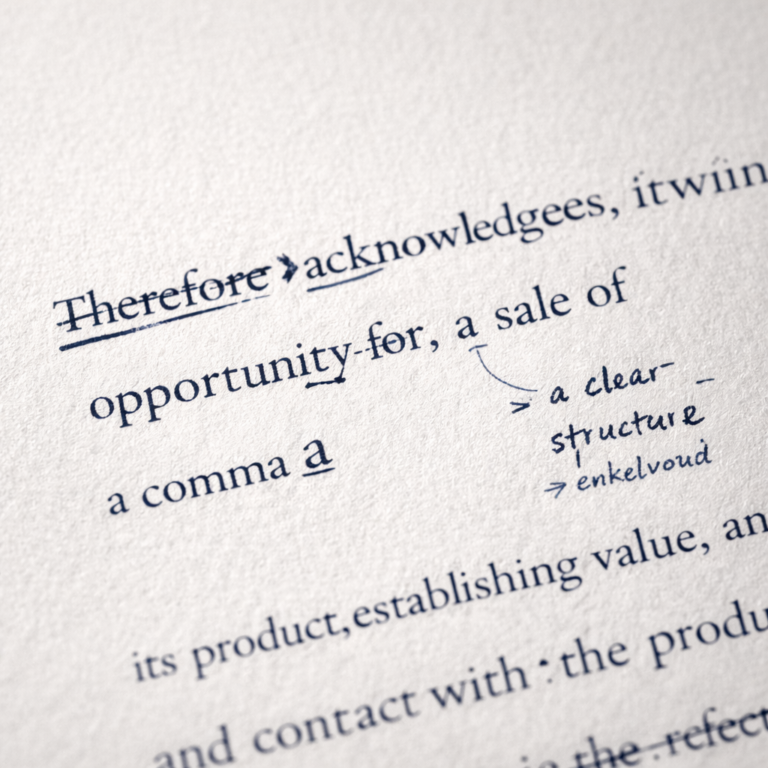 Therefore acknowledgees, itwiin
opportunity-for, a sale of
a comma a
a clear-
structure
enkelvoud
its product,establishing value, an
and contact with : the produ
the refect